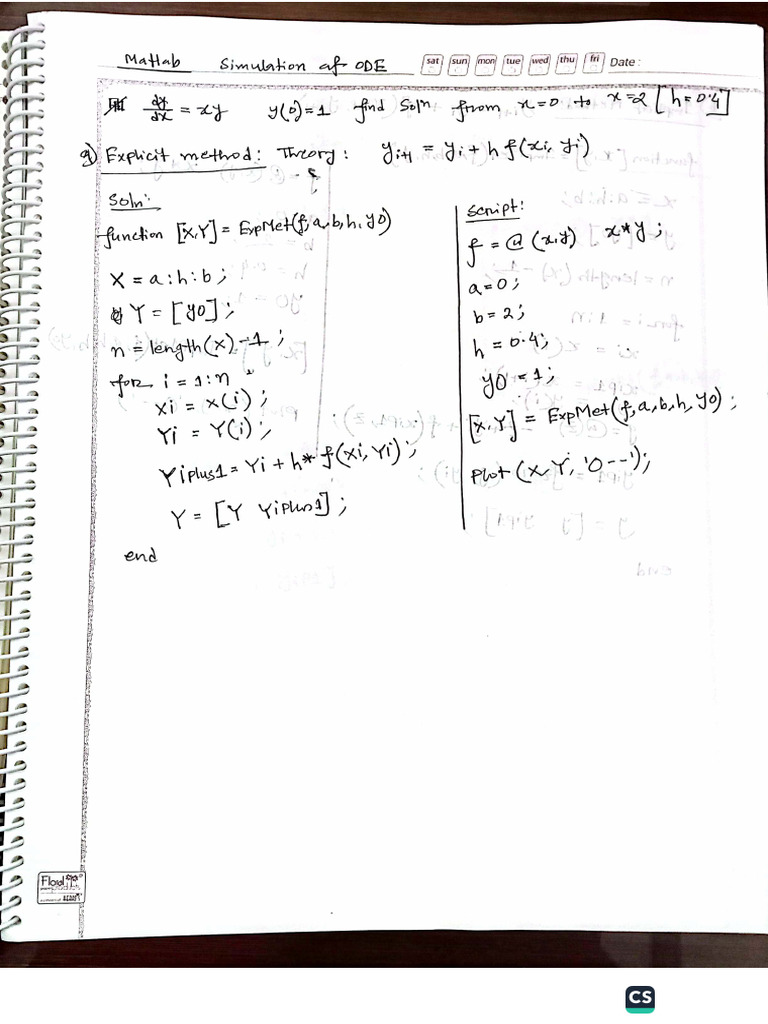 Matlab Simulation of ODE sat sun mon tue wed thu fri Date :
dy/dx = xy y(0)=1 find Soln from x=0 to x=2 [h=0.4]
a) Explicit method: Theory: y_{i+1} = y_i + h f(x_i, y_i)
Soln:
function [X,Y] = ExpMet(f,a,b,h,y0)
X = a:h:b;
Y = [y0];
n = length(X)-1;
for i = 1:n
xi = X(i);
Yi = Y(i);
Yiplus1 = Yi + h* f(xi, Yi);
Y = [Y Yiplus1];
end
Script:
f = @ (x,y) x*y;
a=0;
b=2;
h=0.4;
y0=1;
[X,Y] = ExpMet(f,a,b,h,y0);
plot(X,Y,'o--');
CS